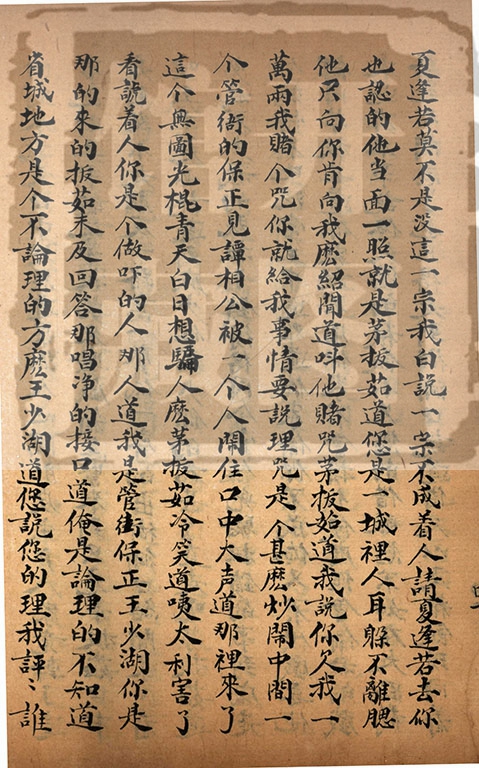 夏逢若莫不是没這一宗我白説一宗不成着人請夏逢若去你
也認的他当面一照就是茅拔茹道您是一城裡人耳躲不離腮
他只向你肯向我麽紹聞道呌他賭咒茅拔茹道我説你欠我一
萬兩我賭个咒你就給我事情要說理咒是个甚麽炒鬧中間一
个管街的保正見譚相公被一个人鬧住口中大声道那裡來了
這个無圖光棍青天白日想騙人麽茅拔茹冷笑道咦太利害了
看諕着人你是个做吓的人那人道我是管街保正王少湖你是
那的來的拔茹未及回答那唱净的接口道俺是論理的不知道
省城地方是个不論理的方麽王少湖道您説您的理我評〻誰